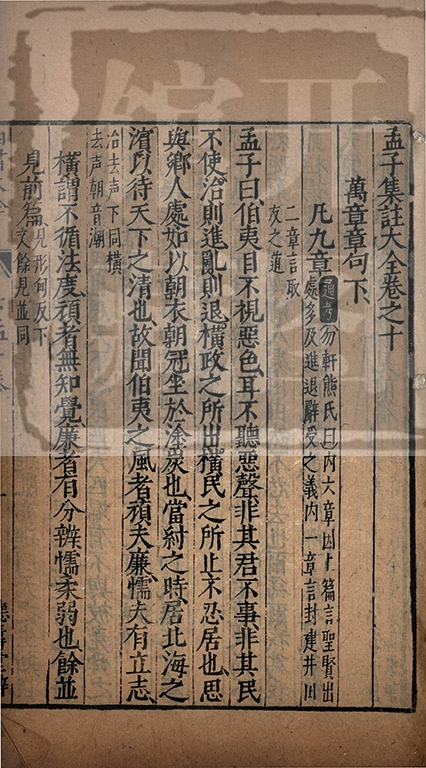 孟子集註大全卷之十
萬章章句下
凡九章 通考 勿軒熊氏曰內大章因上篇言聖賢出
處多及進退辭受之義內一章言封建井田
二章言取
友之道
孟子曰伯夷目不視惡色耳不聽惡聲非其君不事非其民
不使治則進亂則退橫政之所出橫民之所止不忍居也思
與鄉人處如以朝衣朝冠坐於塗炭也當紂之時居北海之
濱以待天下之清也故聞伯夷之風者頑夫廉懦夫有立志
治去声下同橫
去声朝音潮
橫謂不循法度頑者無知覺廉者有分辨懦柔弱也餘並
見前篇 見形甸反下
文餘見並同